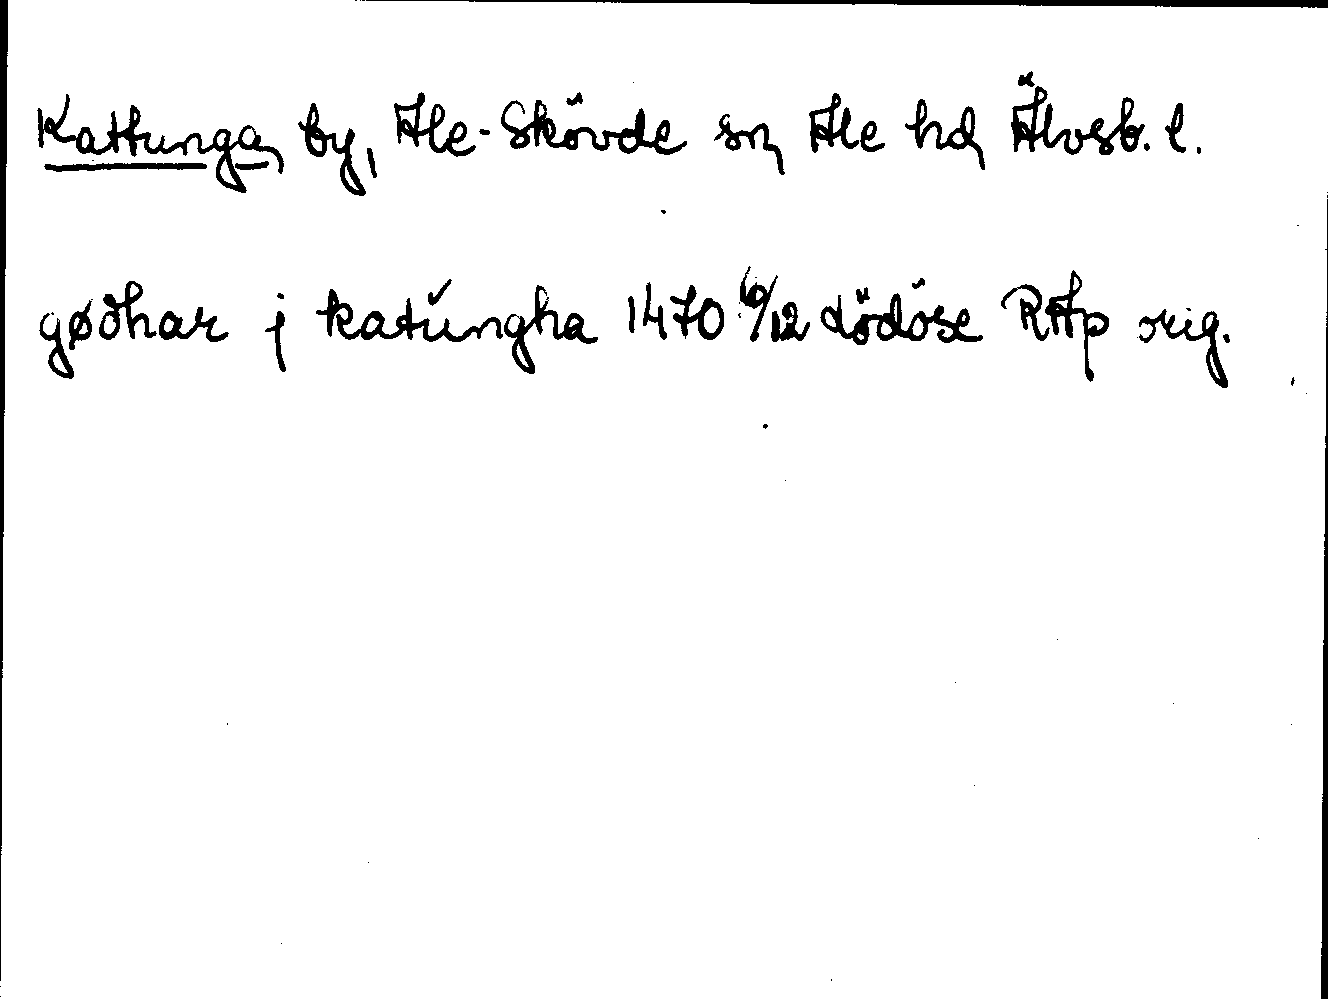 Kattunga, by, Ale-Skövde sn, Ale hd, Älvsb. l.
gøðhar j katŭngha 1470 6/12 Lödöse RAp orig.